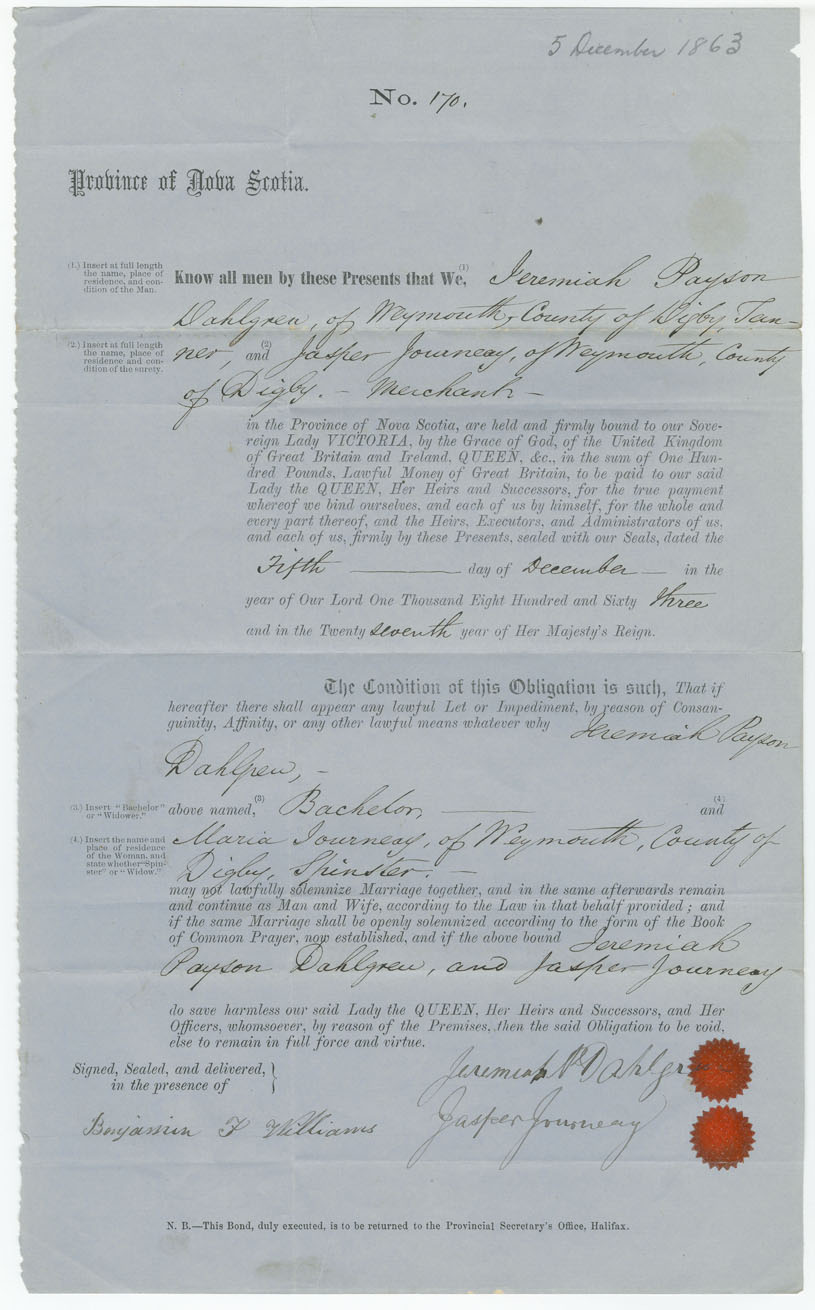 5 December 1863
No. 170.
Province of Nova Scotia.
(1.) Insert at full length
the name, place of
residence, and con-
dition of the Man.
Know all men by these Presents that We,(1) Jeremiah Payson
Dahlgren, of Weymouth, County of Digby, Tan-
(2.) Insert at full length
the name, place of
residence and con-
dition of the surety.
ner, and (2) Jasper Journeay, of Weymouth, County
of Digby. - Merchant -
in the Province of Nova Scotia, are held and firmly bound to our Sove-
reign Lady VICTORIA, by the Grace of God, of the United Kingdom
of Great Britain and Ireland, QUEEN, &c., in the sum of One Hun-
dred Pounds, Lawful Money of Great Britain, to be paid to our said
Lady the QUEEN, Her Heirs and Successors, for the true payment
whereof we bind ourselves, and each of us by himself, for the whole and
every part thereof, and the Heirs, Executors, and Administrators of us,
and each of us, firmly by these Presents, sealed with our Seals, dated the
Fifth day of December in the
year of Our Lord One Thousand Eight Hundred and Sixty three
and in the Twenty seventh year of Her Majesty's Reign.
The Condition of this Obligation is such, That if
hereafter there shall appear any lawful Let or Impediment, by reason of Consan-
guinity, Affinity, or any other lawful means whatever why Jeremiah Payson
Dahlgren, -
(3.) Insert "Bachelor"
or "Widower."
above named,(3) Bachelor, (4) and
(4.) Insert the name and
place of residence
of the Woman, and
state whether "Spin-
ster" or "Widow."
Maria Journeay, of Weymouth, County of
Digby, Spinster. -
may not lawfully solemnize Marriage together, and in the same afterwards remain
and continue as Man and Wife, according to the Law in that behalf provided; and
if the same Marriage shall be openly solemnized according to the form of the Book
of Common Prayer, now established, and if the above bound Jeremiah
Payson Dahlgren, and Jasper Journeay
do save harmless our said Lady the QUEEN, Her Heirs and Successors, and Her
Officers, whomsoever, by reason of the Premises, then the said Obligation to be void,
else to remain in full force and virtue.
Signed, Sealed, and delivered,
in the presence of
Jeremiah P Dahlgren
Benjamin F Williams
Jasper Journeay
N. B.—This Bond, duly executed, is to be returned to the Provincial Secretary's Office, Halifax.